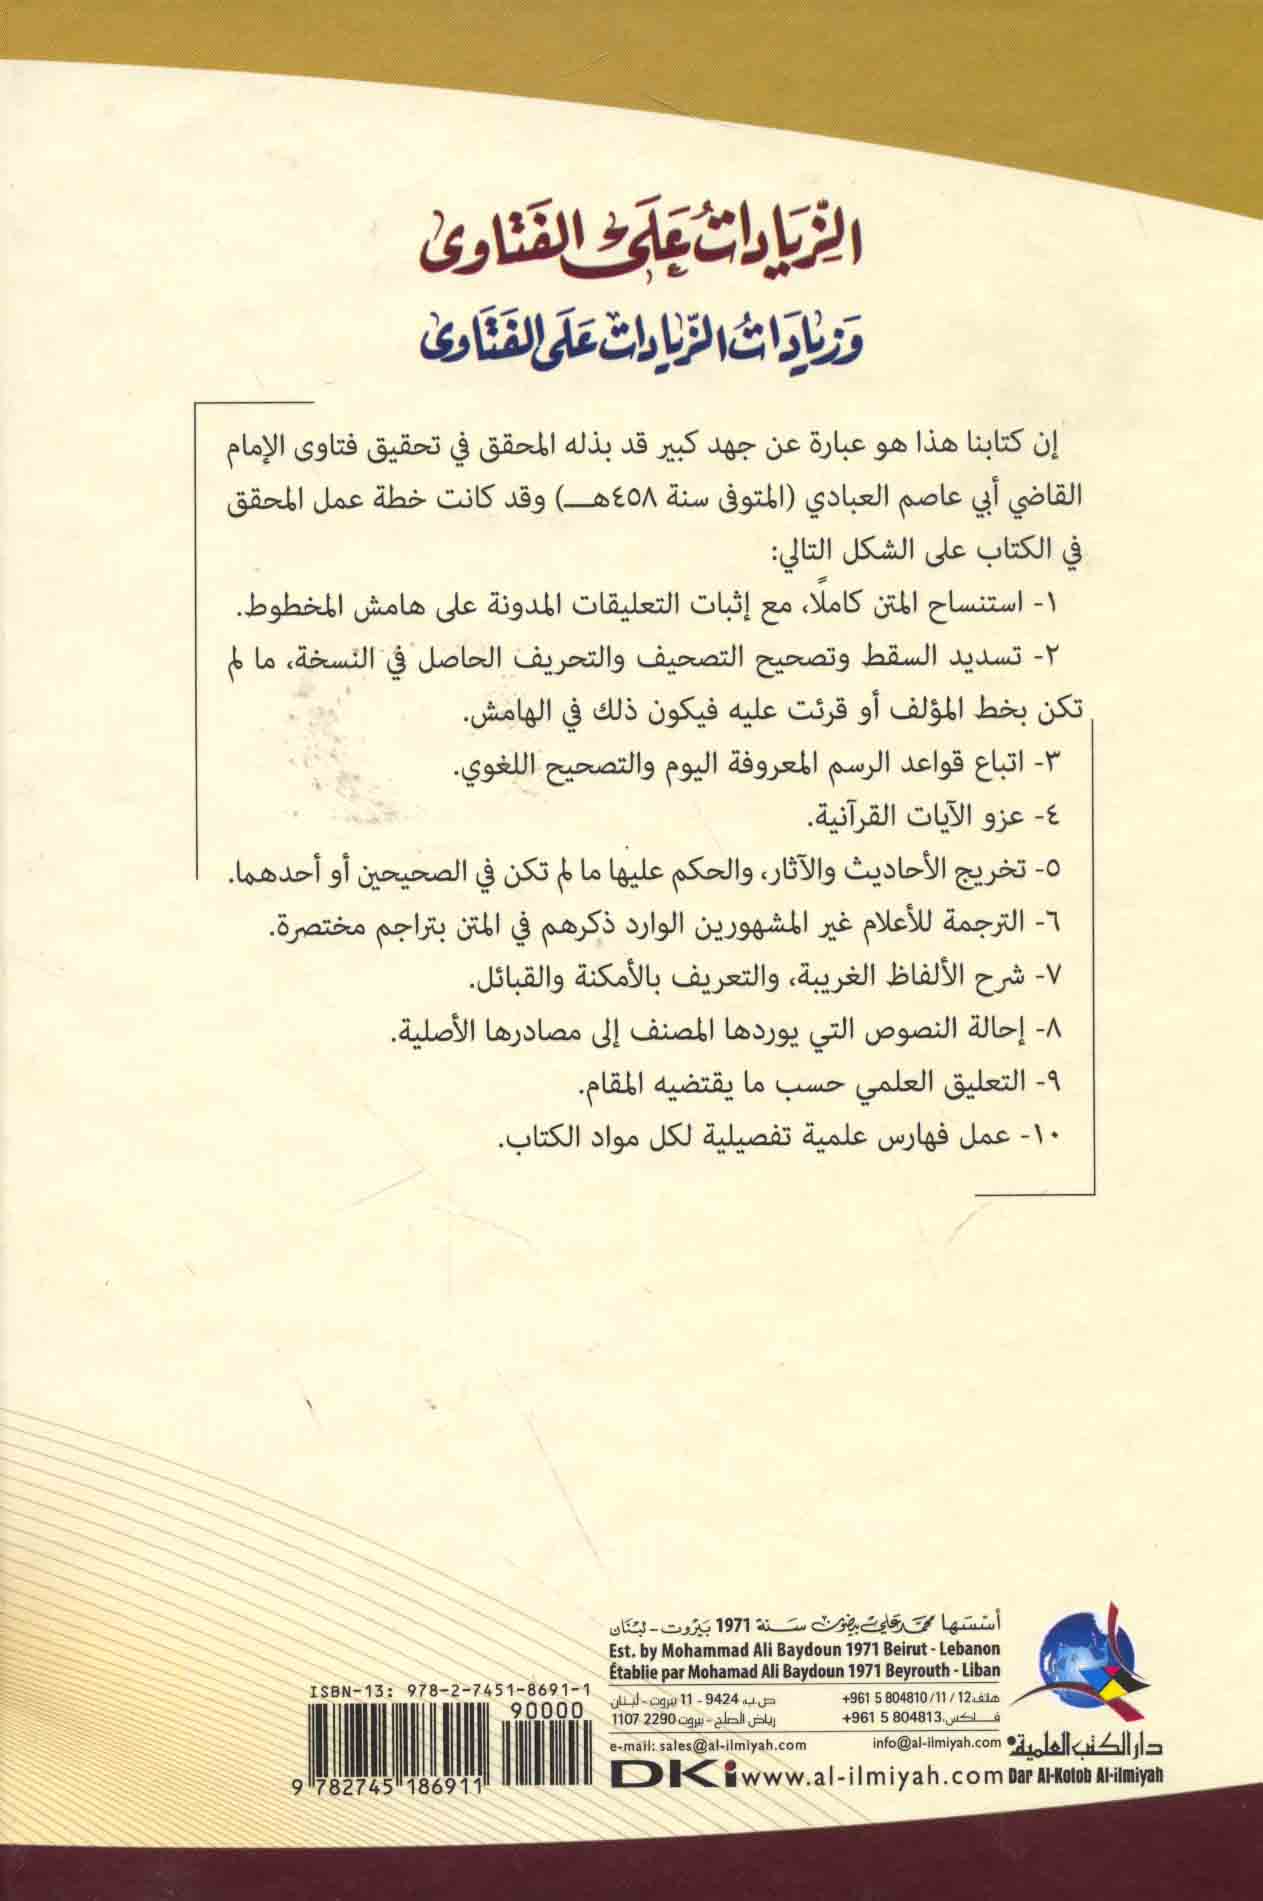 الزِّيَادَاتُ عَلَى الفَتَاوى
وَزِيَادَاتُ الزِّيَادَات عَلَى الفَتَاوى
إن كتابنا هذا هو عبارة عن جهد كبير قد بذله المحقق في تحقيق فتاوى الإمام
القاضي أبي عاصم العبادي (المتوفى سنة ٤٥٨هـ) وقد كانت خطة عمل المحقق
في الكتاب على الشكل التالي:
١- استنساح المتن كاملًا، مع إثبات التعليقات المدونة على هامش المخطوط.
٢- تسديد السقط وتصحيح التصحيف والتحريف الحاصل في النسخة، ما لم
تكن بخط المؤلف أو قرئت عليه فيكون ذلك في الهامش.
٣- اتباع قواعد الرسم المعروفة اليوم والتصحيح اللغوي.
٤- عزو الآيات القرآنية.
٥- تخريج الأحاديث والآثار، والحكم عليها ما لم تكن في الصحيحين أو أحدهما.
٦- الترجمة للأعلام غير المشهورين الوارد ذكرهم في المتن بتراجم مختصرة.
٧- شرح الألفاظ الغريبة، والتعريف بالأمكنة والقبائل.
٨- إحالة النصوص التي يوردها المصنف إلى مصادرها الأصلية.
٩- التعليق العلمي حسب ما يقتضيه المقام.
١٠- عمل فهارس علمية تفصيلية لكل مواد الكتاب.
أسّسَها محمّد عَلي بيضون سَنة 1971 بَيروت - لبْنَان
Est. by Mohammad Ali Baydoun 1971 Beirut - Lebanon
Établie par Mohamad Ali Baydoun 1971 Beyrouth - Liban
هاتف: +961 5 804810/11/12
فاكس: +961 5 804813
ص.ب: 9424-11 بيروت-لبنان
رياض الصلح-بيروت 2290 1107
e-mail: sales@al-ilmiyah.com
info@al-ilmiyah.com
DKi www.al-ilmiyah.com
دار الكتب العلمية
Dar Al-Kotob Al-ilmiyah
ISBN-13: 978-2-7451-8691-1
90000
9 782745 186911